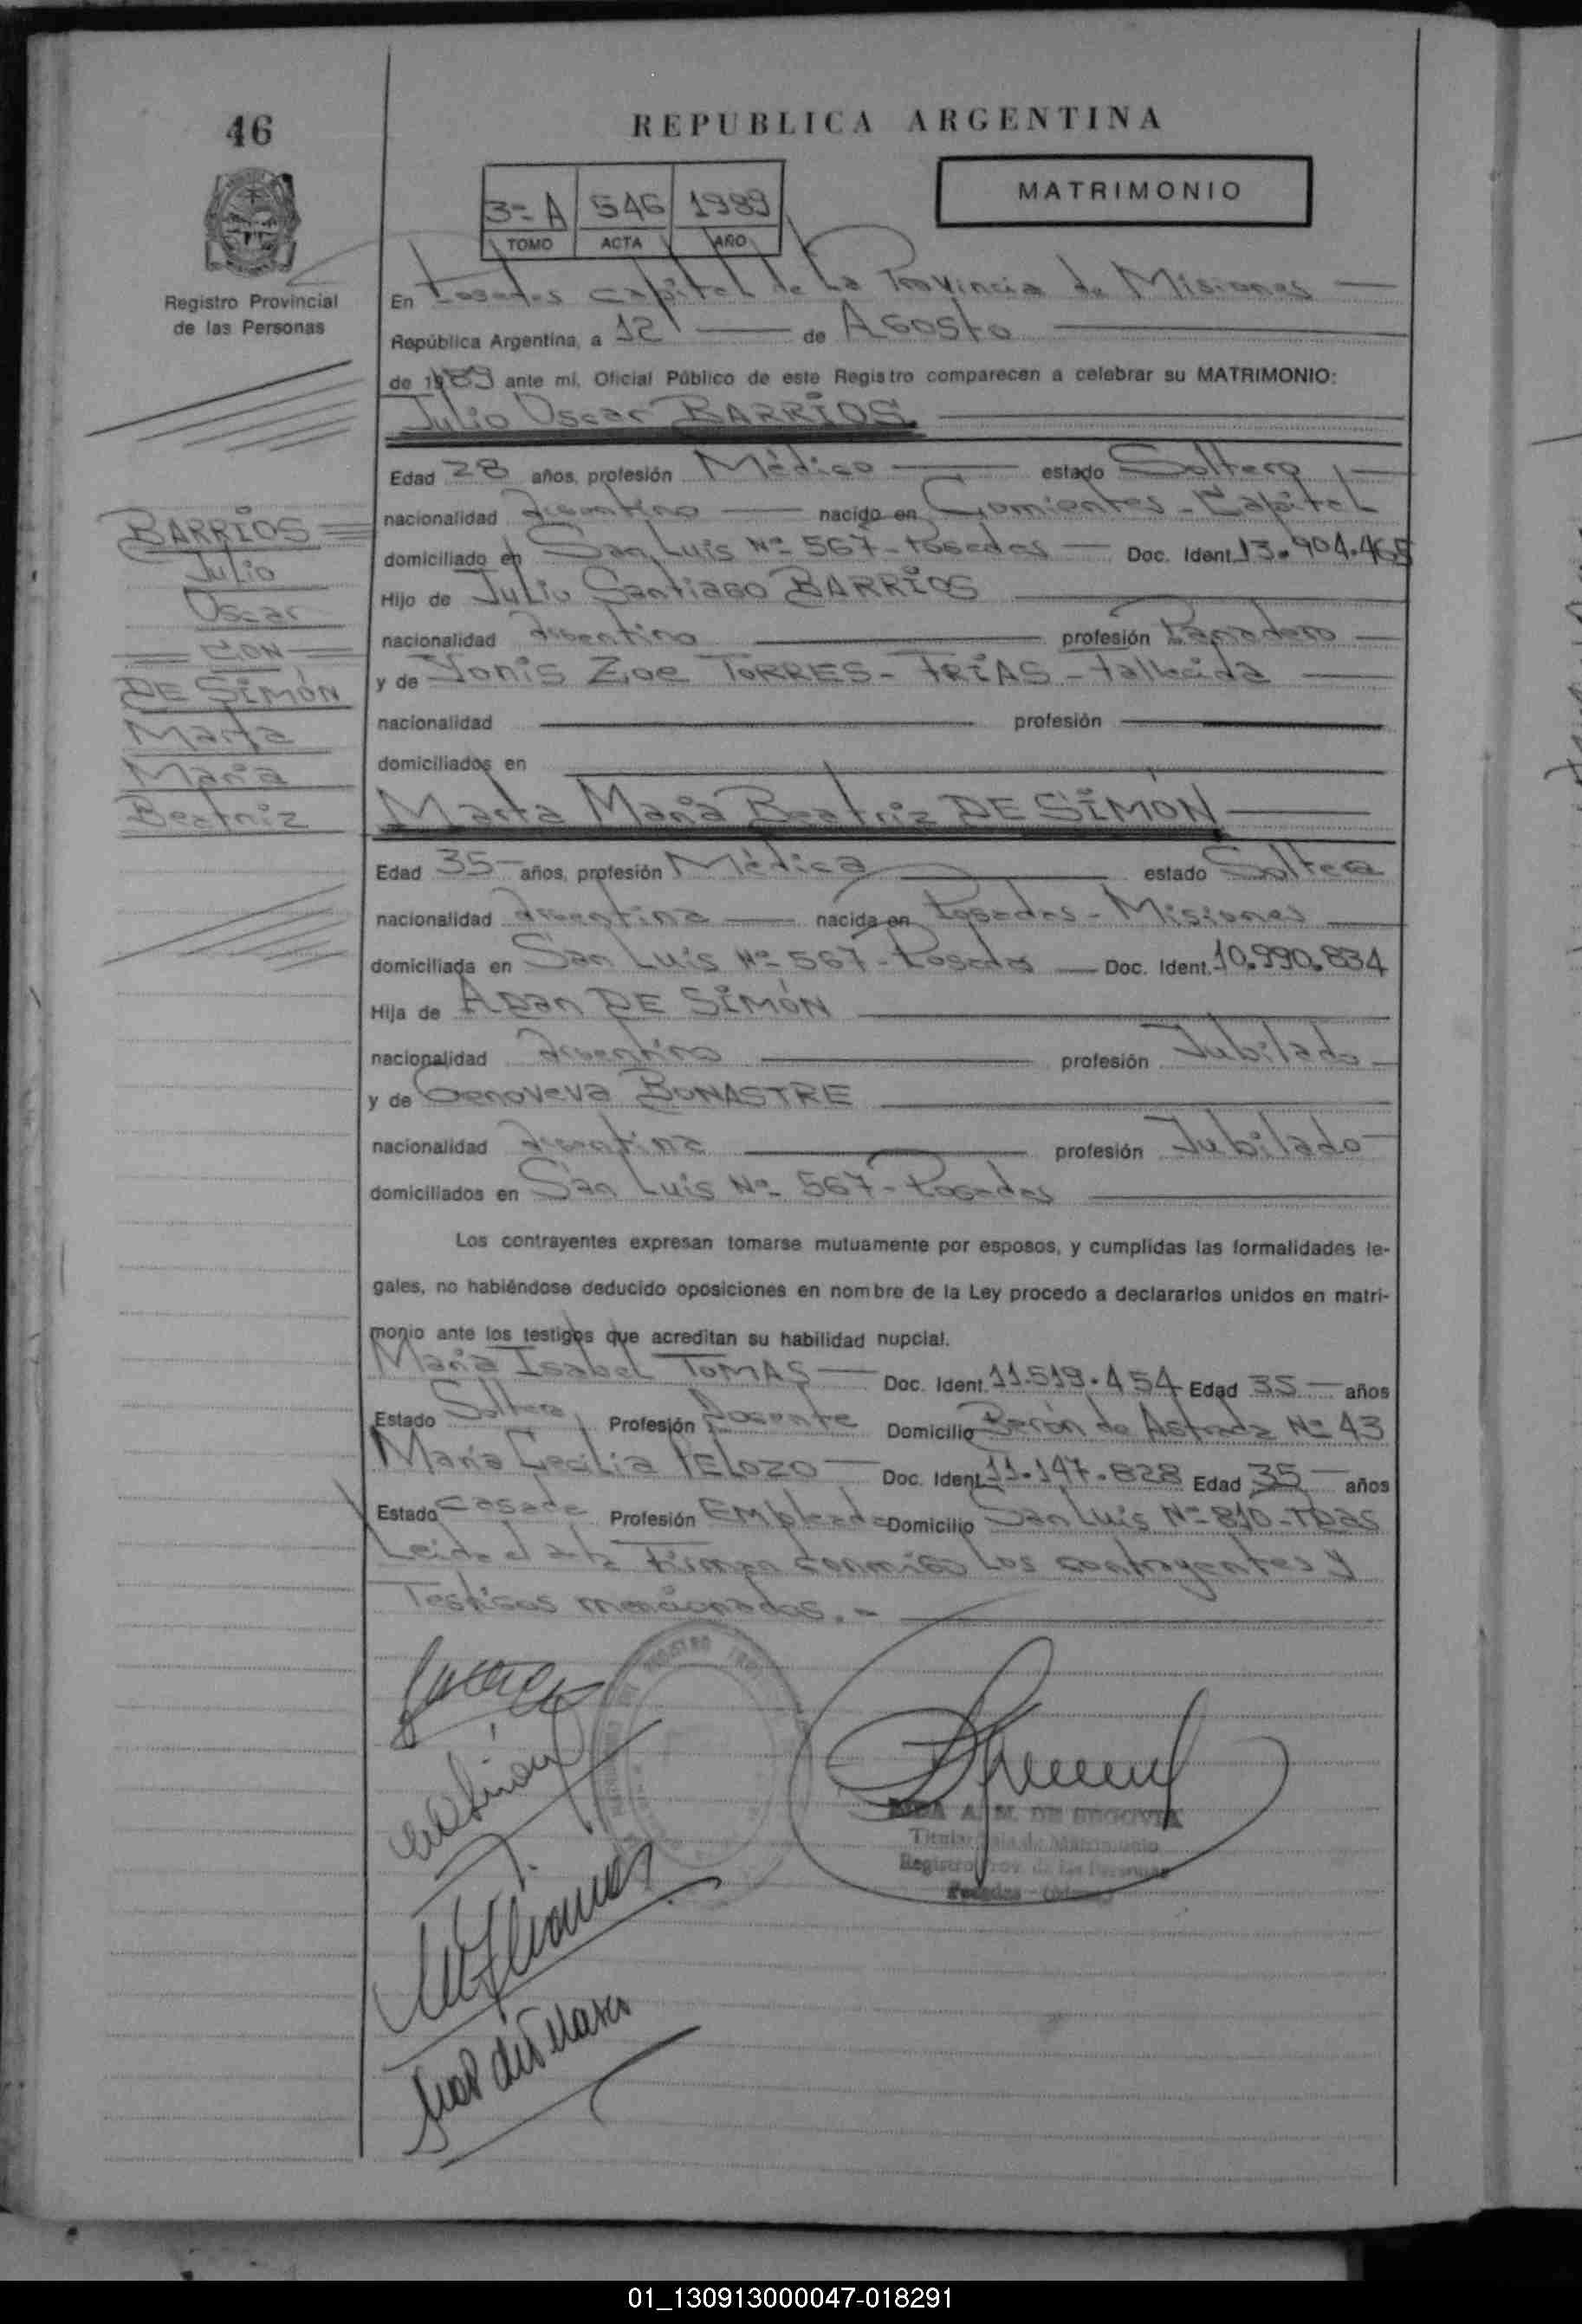 46
REPUBLICA ARGENTINA
MATRIMONIO
3= A 546 1989
TOMO ACTA AÑO
Registro Provincial
de las Personas
En Posadas capital de La Provincia de Misiones
República Argentina, a 12 de Agosto
de 1989 ante mí, Oficial Público de este Registro comparecen a celebrar su MATRIMONIO:
Julio Oscar BARRIOS
Edad 28 años, profesión Médico estado Soltero
nacionalidad Argentino nacido en Corrientes - Capital
domiciliado en San Luis Nº 567 - Posadas Doc. Ident. 13.904.465
Hijo de Julio Santiago BARRIOS
nacionalidad Argentino profesión Panadero
y de Yonis Zoe TORRES - FRIAS - Fallecida
nacionalidad profesión
domiciliados en
BARRIOS
Julio
Oscar
CON
DE SIMÓN
Marta
María
Beatriz
Marta María Beatriz DE SIMÓN
Edad 35 años, profesión Médica estado Soltera
nacionalidad Argentina nacida en Posadas - Misiones
domiciliada en San Luis Nº 567 - Posadas Doc. Ident. 10.990.834
Hija de Adan DE SIMÓN
nacionalidad Argentino profesión Jubilado
y de Genoveva BONASTRE
nacionalidad Argentina profesión Jubilado
domiciliados en San Luis Nº 567 - Posadas
Los contrayentes expresan tomarse mutuamente por esposos, y cumplidas las formalidades le-
gales, no habiéndose deducido oposiciones en nombre de la Ley procedo a declararlos unidos en matri-
monio ante los testigos que acreditan su habilidad nupcial.
María Isabel TOMAS Doc. Ident. 11.519.454 Edad 35 años
Estado Soltera Profesión Docente Domicilio Berón de Astrada Nº 43
María Cecilia PELOZO Doc. Ident. 11.147.828 Edad 35 años
Estado Casada Profesión Empleada Domicilio San Luis Nº 810 - Pdas
Leida el acta Firman conmigo Los contrayentes y
Testigos mencionados.=
A. M. DE SEGOVIA
Titular Sala de Matrimonio
Registro Prov. de las Personas
Posadas
01_130913000047-018291